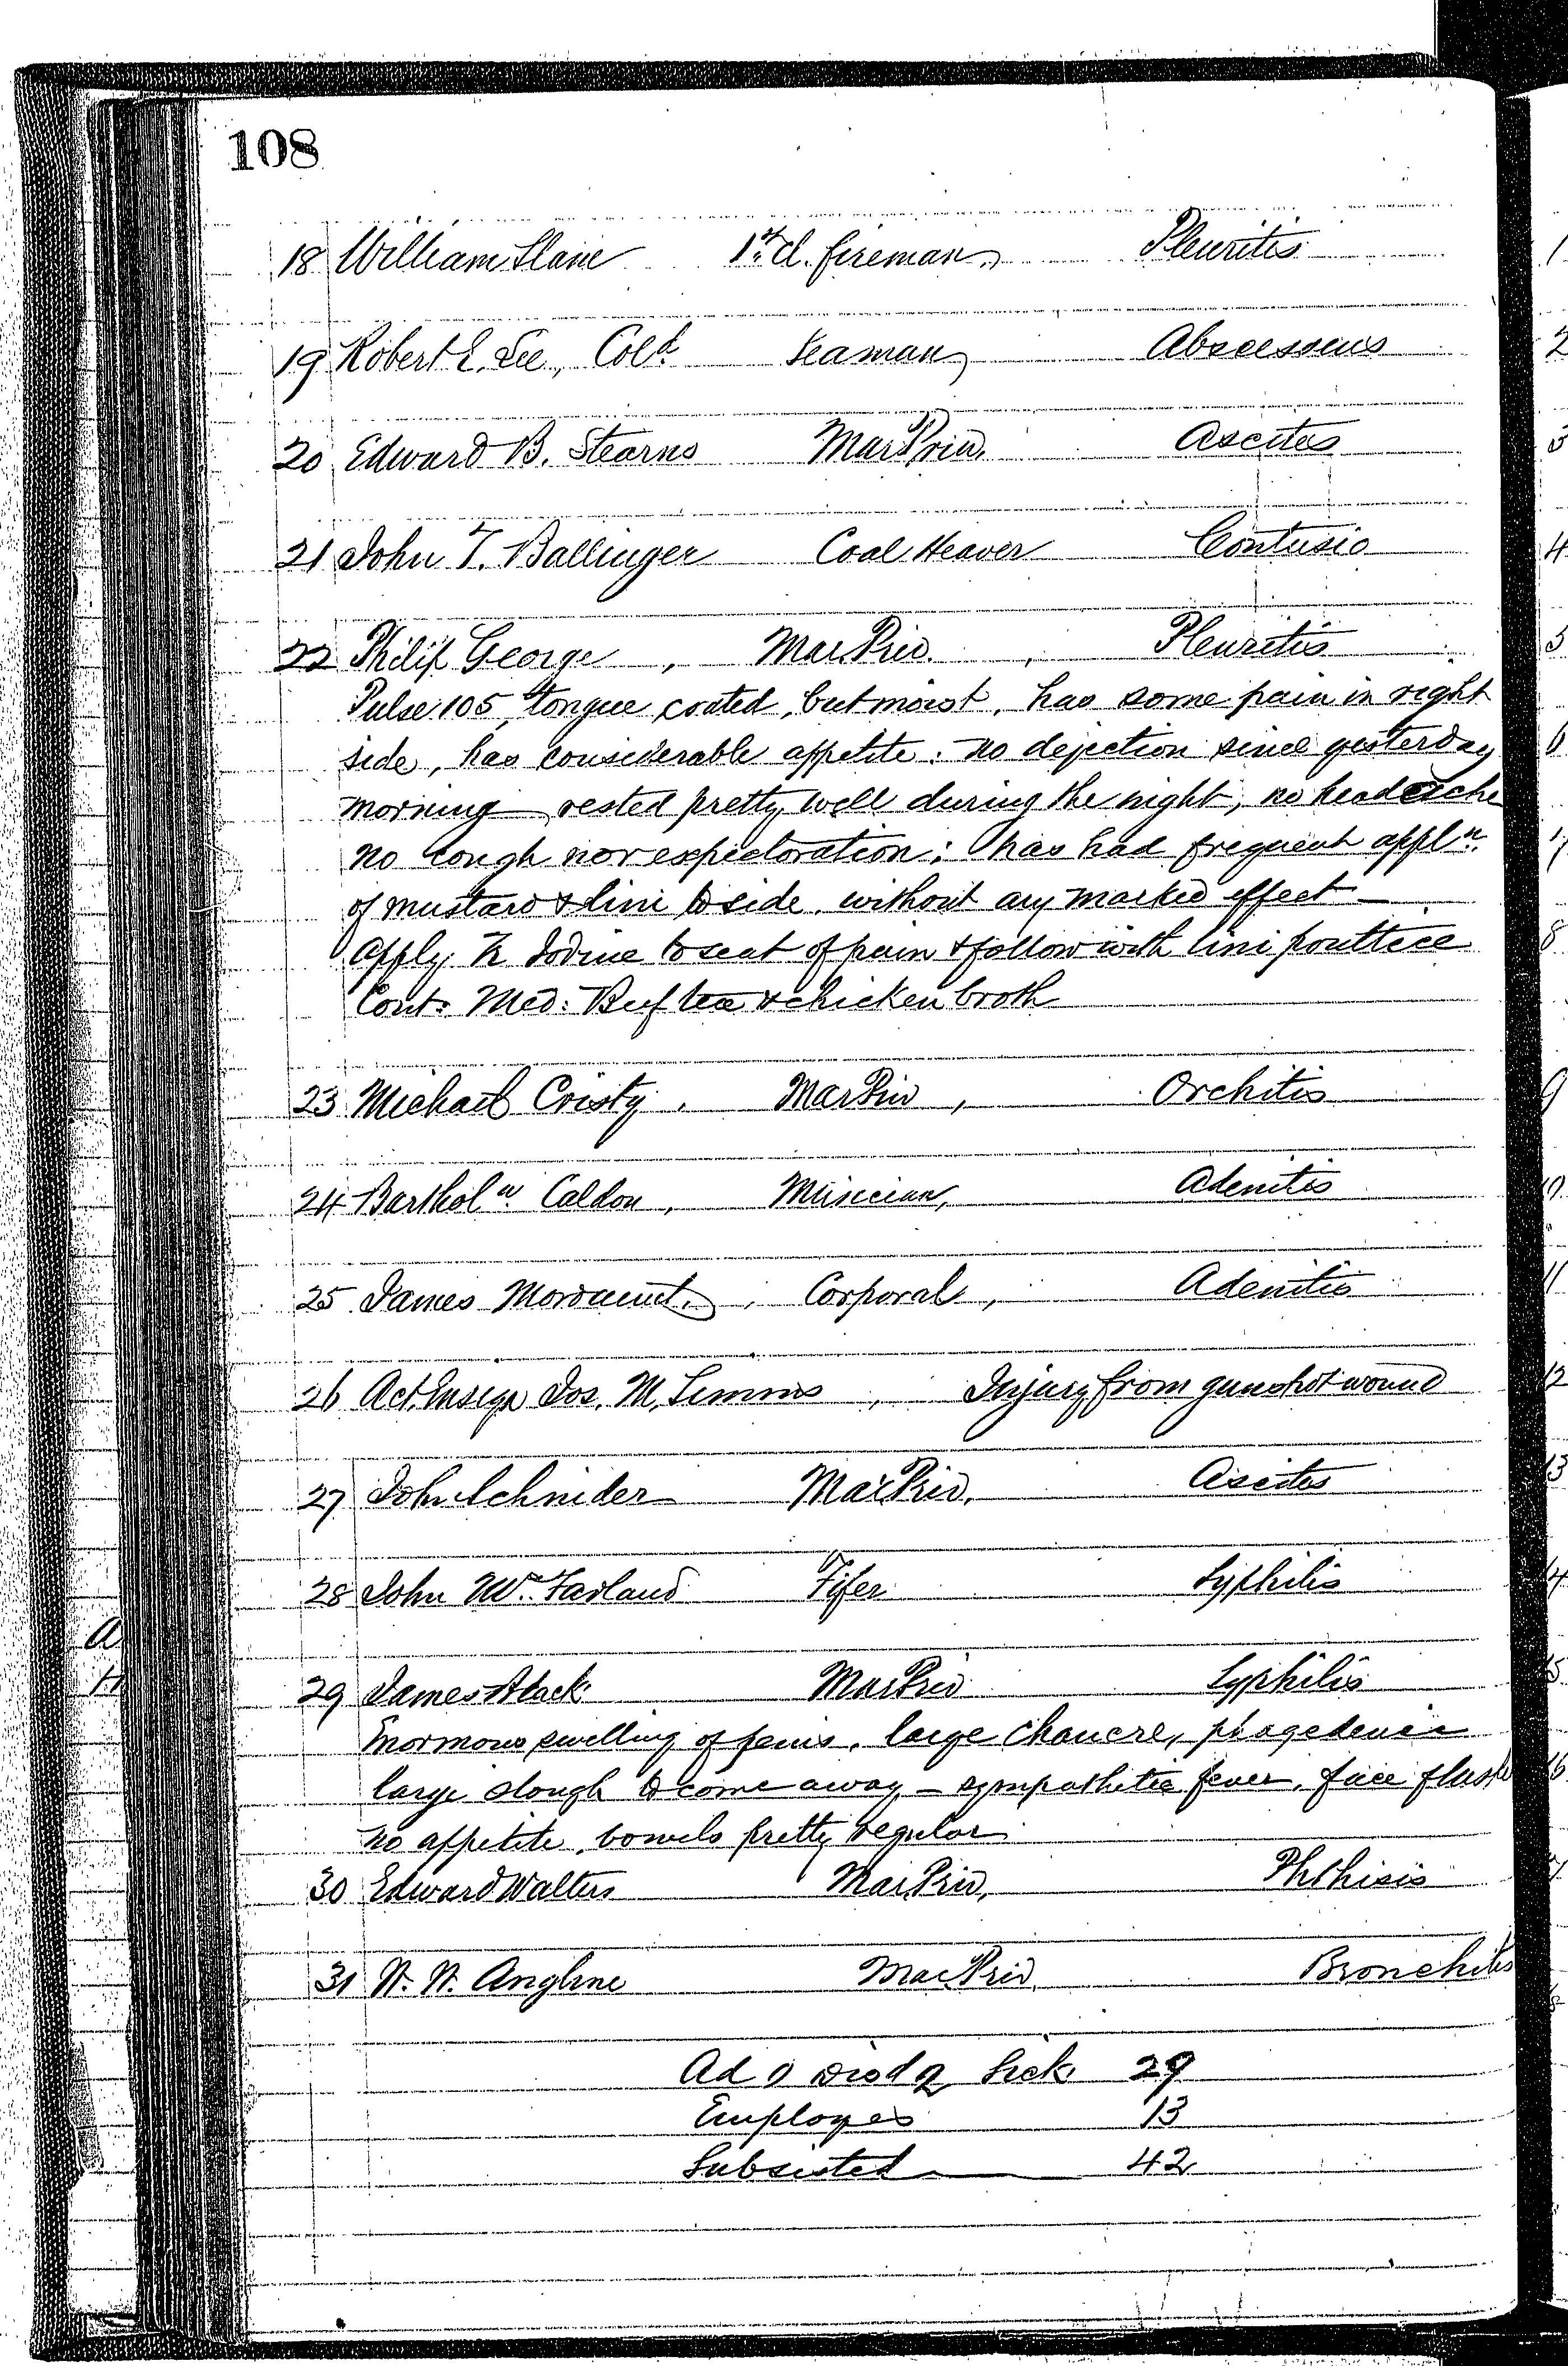 108
18 William Slane 1st cl. fireman, Pleuritis
19 Robert E. Lee, Cold. Seaman, Abscessus
20 Edward B. Stearns Mar Priv. Ascites
21 John T. Ballinger Coal Heaver Contusio
22 Philip George, Mar. Priv. Pleuritis
Pulse 105, tongue coated, but moist, has some pain in right
side, has considerable appetite: no dejection since yesterday
morning rested pretty well during the night, no headache
no cough nor expectoration: has had frequent appln.
of mustard & lini to side, without any marked effect —
Apply Tr Iodine to seat of pain & follow with lini poultice
Cont: Med: Beef tea & chicken broth
23 Michael Cristy, Mar Priv, Orchitis
24 Barthol w. Caldon, Musician, Adenitis
25 James Mordaunt, Corporal, Adenitis
26 Act. Ensign Jos. M. Simms, Injury from gunshot wound
27 John Schnider Mar Priv. Ascites
28 John Mc. Farland Fifer Syphilis
29 James Mar Priv Syphilis
Enormous swelling of penis, large chancre, phagedenic
large slough to come away, — sympathetic fever, face flush
no appetite, bowels pretty regular
30 Edward Walters Mar. Priv, Phthisis
31 Angline Mar Priv. Bronchitis
Sick 29
Employes 13
Subsisted 42